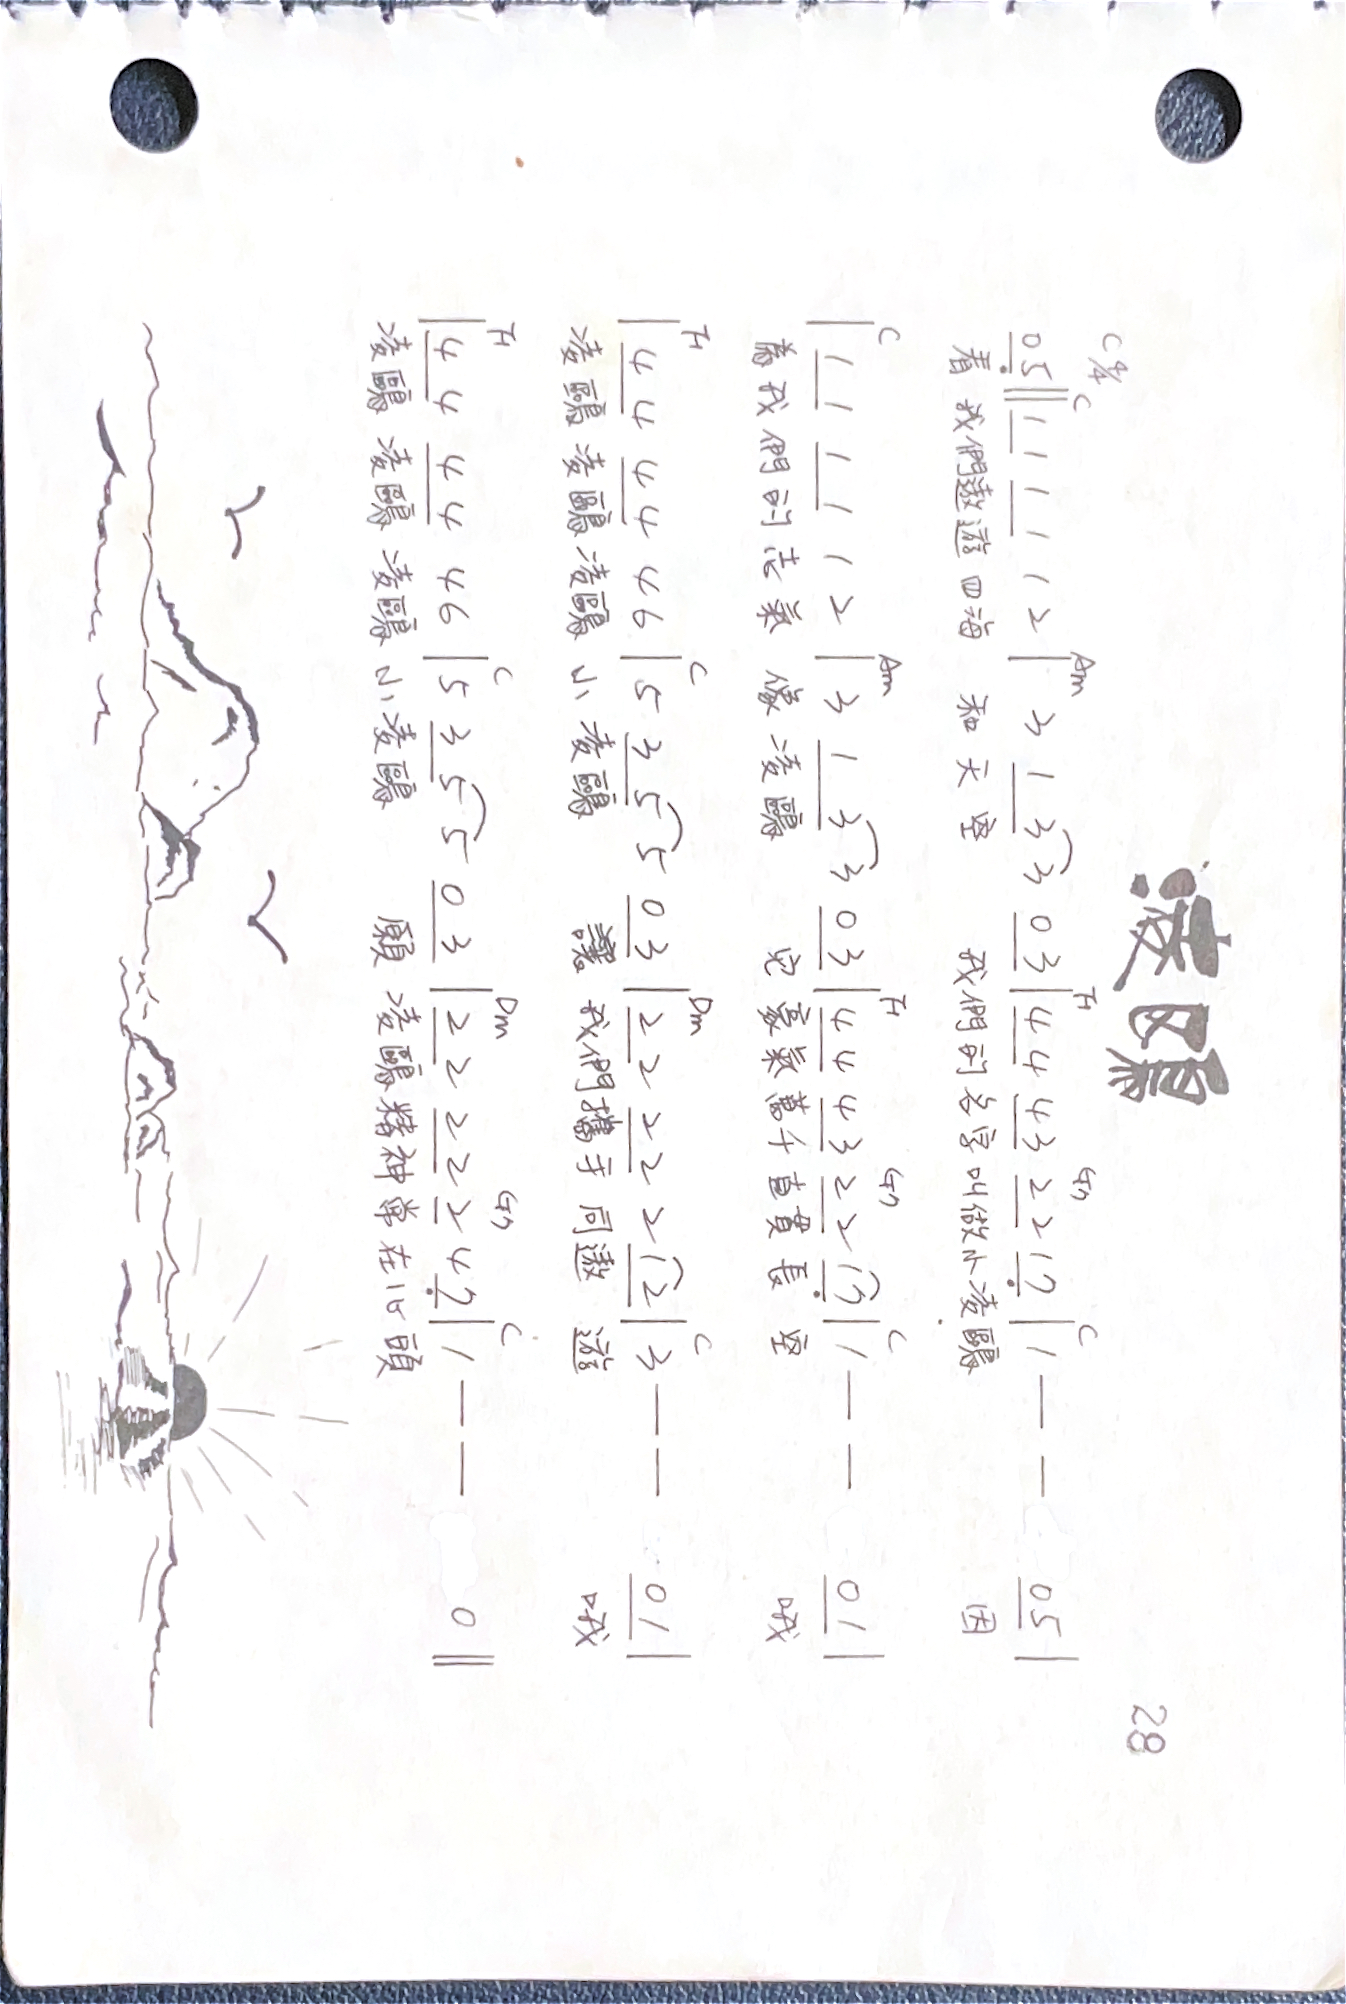 凌鷗
28
C 4/4
C Am F G7 C
05‖11 11 1 2 | 3 1 3 3 03 | 44 43 22 17 | 1 — — 05 |
看 我們遨遊四海 和天空 我們的名字叫做小凌鷗 因
C Am F G7 C
| 11 11 1 2 | 3 1 3 3 03 | 44 43 22 17 | 1 — — 01 |
為我們的志氣 像凌鷗 它豪氣萬千直貫長空 哦
F C Dm C
| 44 44 46 | 5 3 5 5 03 | 22 22 2 12 | 3 — — 01 |
凌鷗 凌鷗 凌鷗 小凌鷗 讓 我們攜手同遨 遊 哦
F C Dm G7 C
| 44 44 46 | 5 3 5 5 03 | 22 22 2 47 | 1 — — 0 ‖
凌鷗 凌鷗 凌鷗 小凌鷗 願 凌鷗精神常在心頭